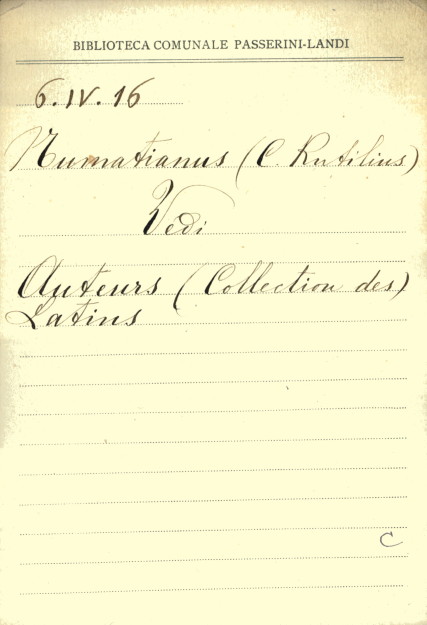 BIBLIOTECA COMUNALE PASSERINI-LANDI
6.IV.16
Numatianus (C. Rutilius)
Vedi
Auteurs (Collection des)
Latins
C